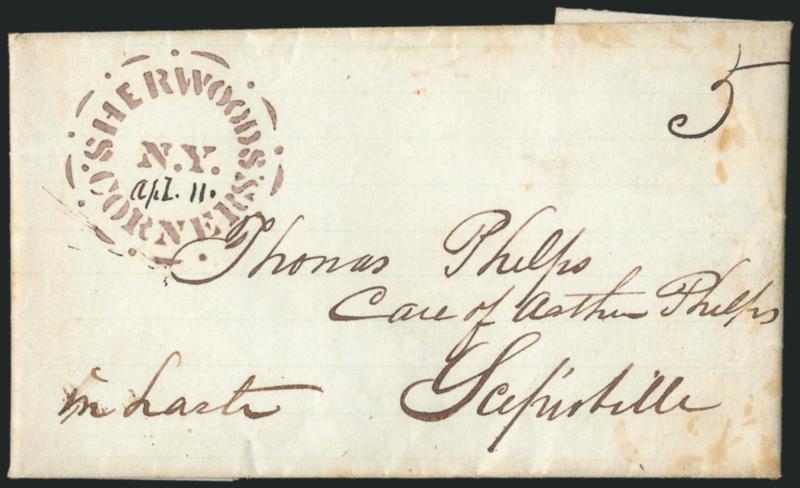 SHERWOOD'S
N.Y.
Apl. 11.
CORNERS
5
Thomas Phelps
Care of Arthur Phelps
in haste
Scipioville